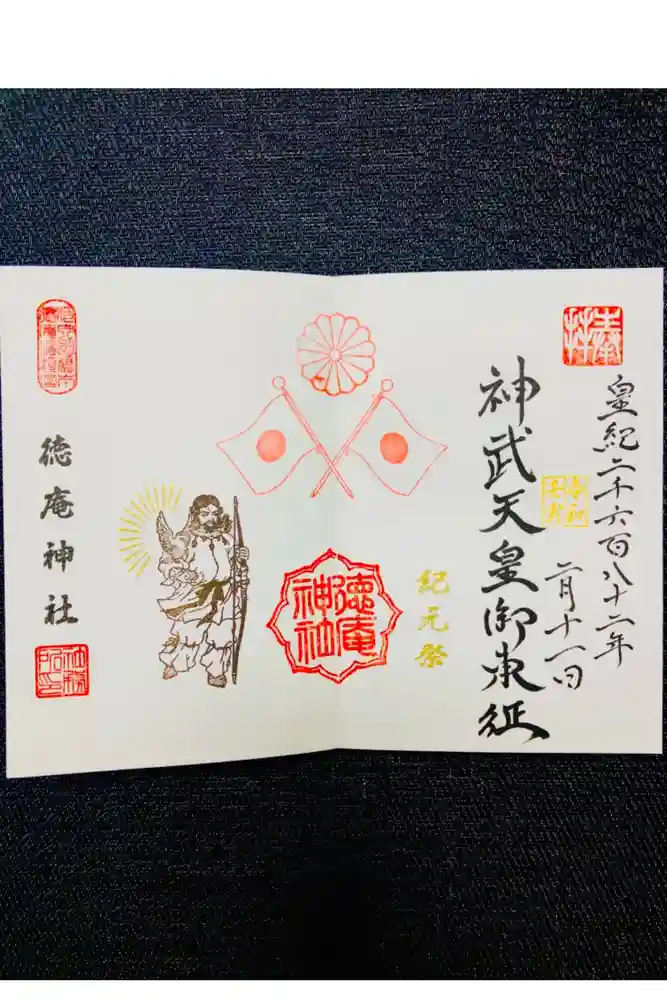 奉拝
皇紀二千六百八十二年
令和
二月十一日
神武天皇御東征
紀元祭
徳庵神社
徳庵神社
社務所印